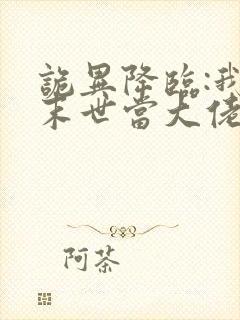 詭異降臨:我
末世當大佬
阿茶